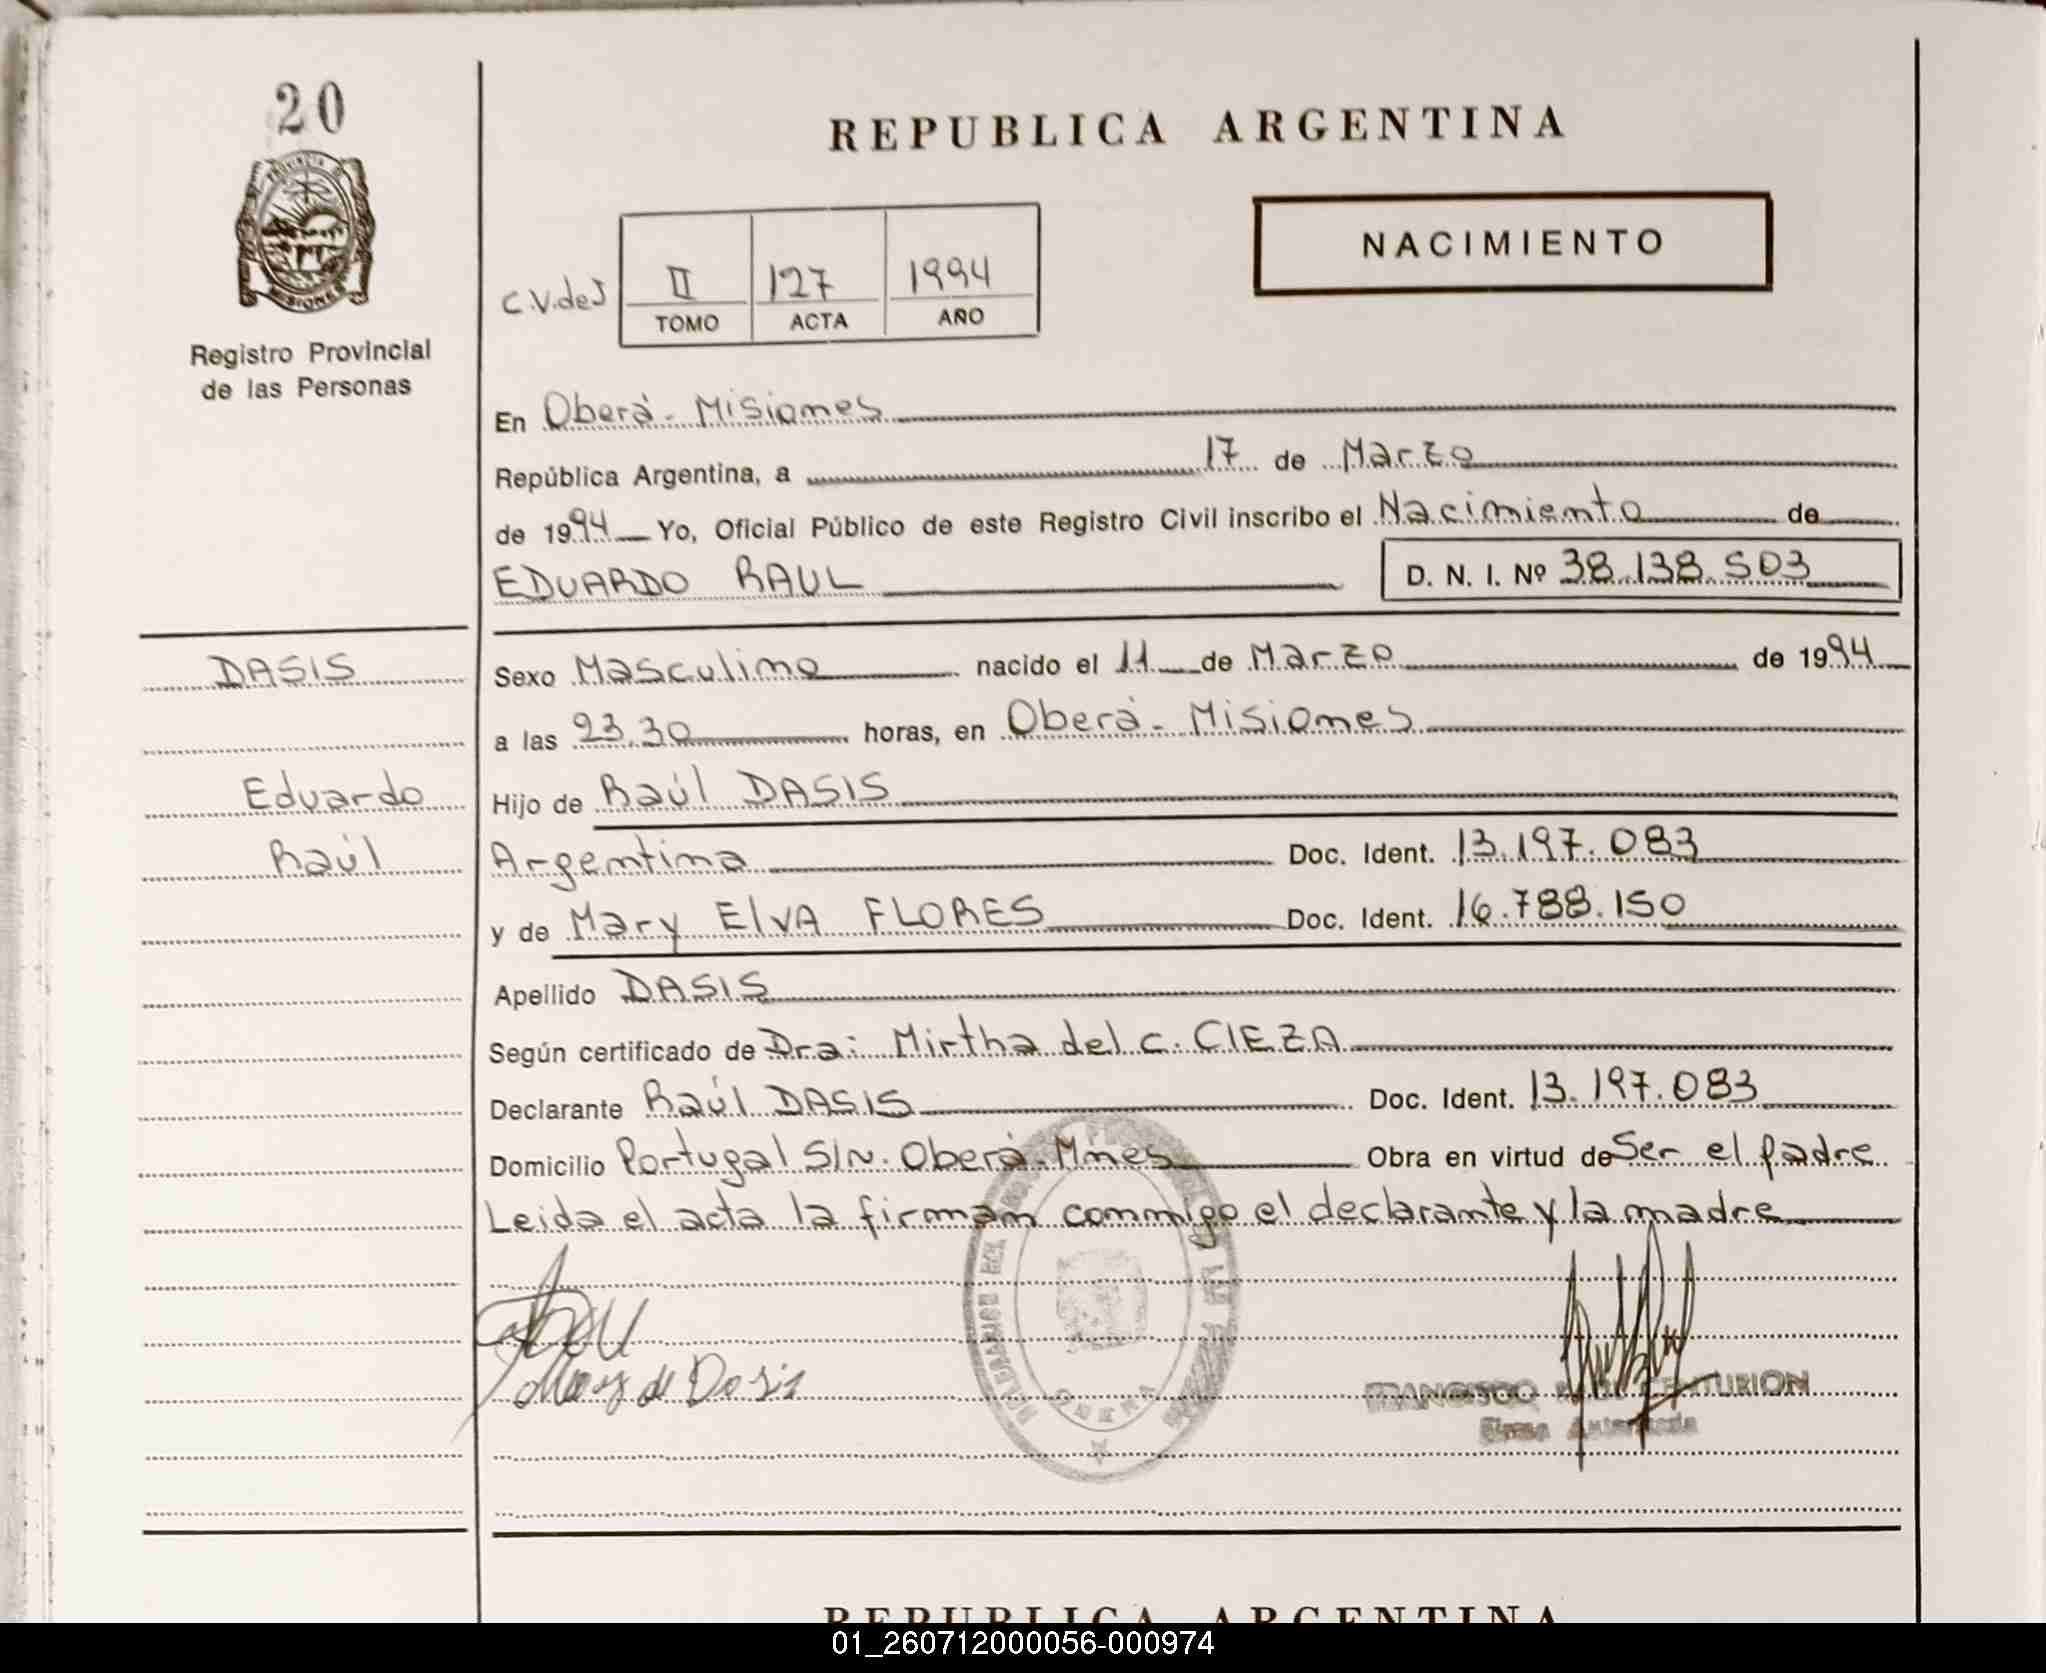 20
PROVINCIA DE
MISIONES
Registro Provincial
de las Personas
REPUBLICA ARGENTINA
NACIMIENTO
C.V.deJ
II 127 1994
TOMO ACTA AÑO
En Oberá - Misiones
República Argentina, a 17 de Marzo
de 1994 Yo, Oficial Público de este Registro Civil inscribo el Nacimiento de
EDUARDO RAUL D. N. I. Nº 38.138.503
DASIS
Eduardo
Raúl
Sexo Masculino nacido el 11 de Marzo de 1994
a las 23.30 horas, en Oberá - Misiones
Hijo de Raúl DASIS
Argentina Doc. Ident. 13.197.083
y de Mary Elva FLORES Doc. Ident. 16.788.150
Apellido DASIS
Según certificado de Dra: Mirtha del C. CIEZA
Declarante Raúl DASIS Doc. Ident. 13.197.083
Domicilio Portugal S/N. Oberá - Mnes Obra en virtud de Ser el padre
Leida el acta la firman conmigo el declarante y la madre
Mary de Dasis
FRANCISCO CENTURION
Firma Autorizada
OBERA
REPUBLICA ARGENTINA
01_260712000056-000974